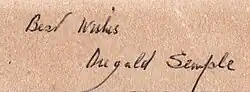 Best Wishes
Dugald Semple